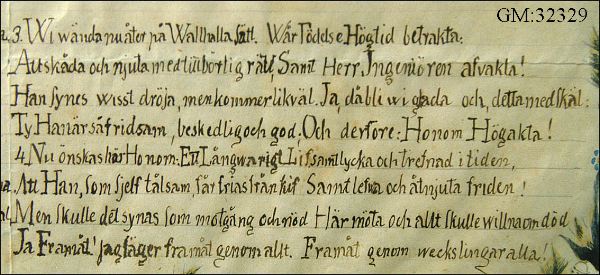 GM:32329
a. 3. Wi wända nu åter på Wallhalla sätt. Wår Födds e Högtid betrakta:
Att skåda och njuta med tillbörlig rätt, Samt Herr Ingeniören afvakta!
Han synes wisst dröja, men kommer likväl. Ja, då bli wi glada och, detta med skäl:
Ty Han är så fridsam, beskedlig och god, Och derföre: Honom Högakta!
4. Nu önskas här Honom: Ett Långwarigt Lif samt lycka och trefnad i tiden,
Att Han, som sjelf tålsam, får frias från kif Samt lefva och åtnjuta friden!
Men skulle det synas som motgång och nöd Här möta och allt skulle willna om död
Ja Framåt! jag säger framåt genom allt. Framåt genom weckslingar alla!